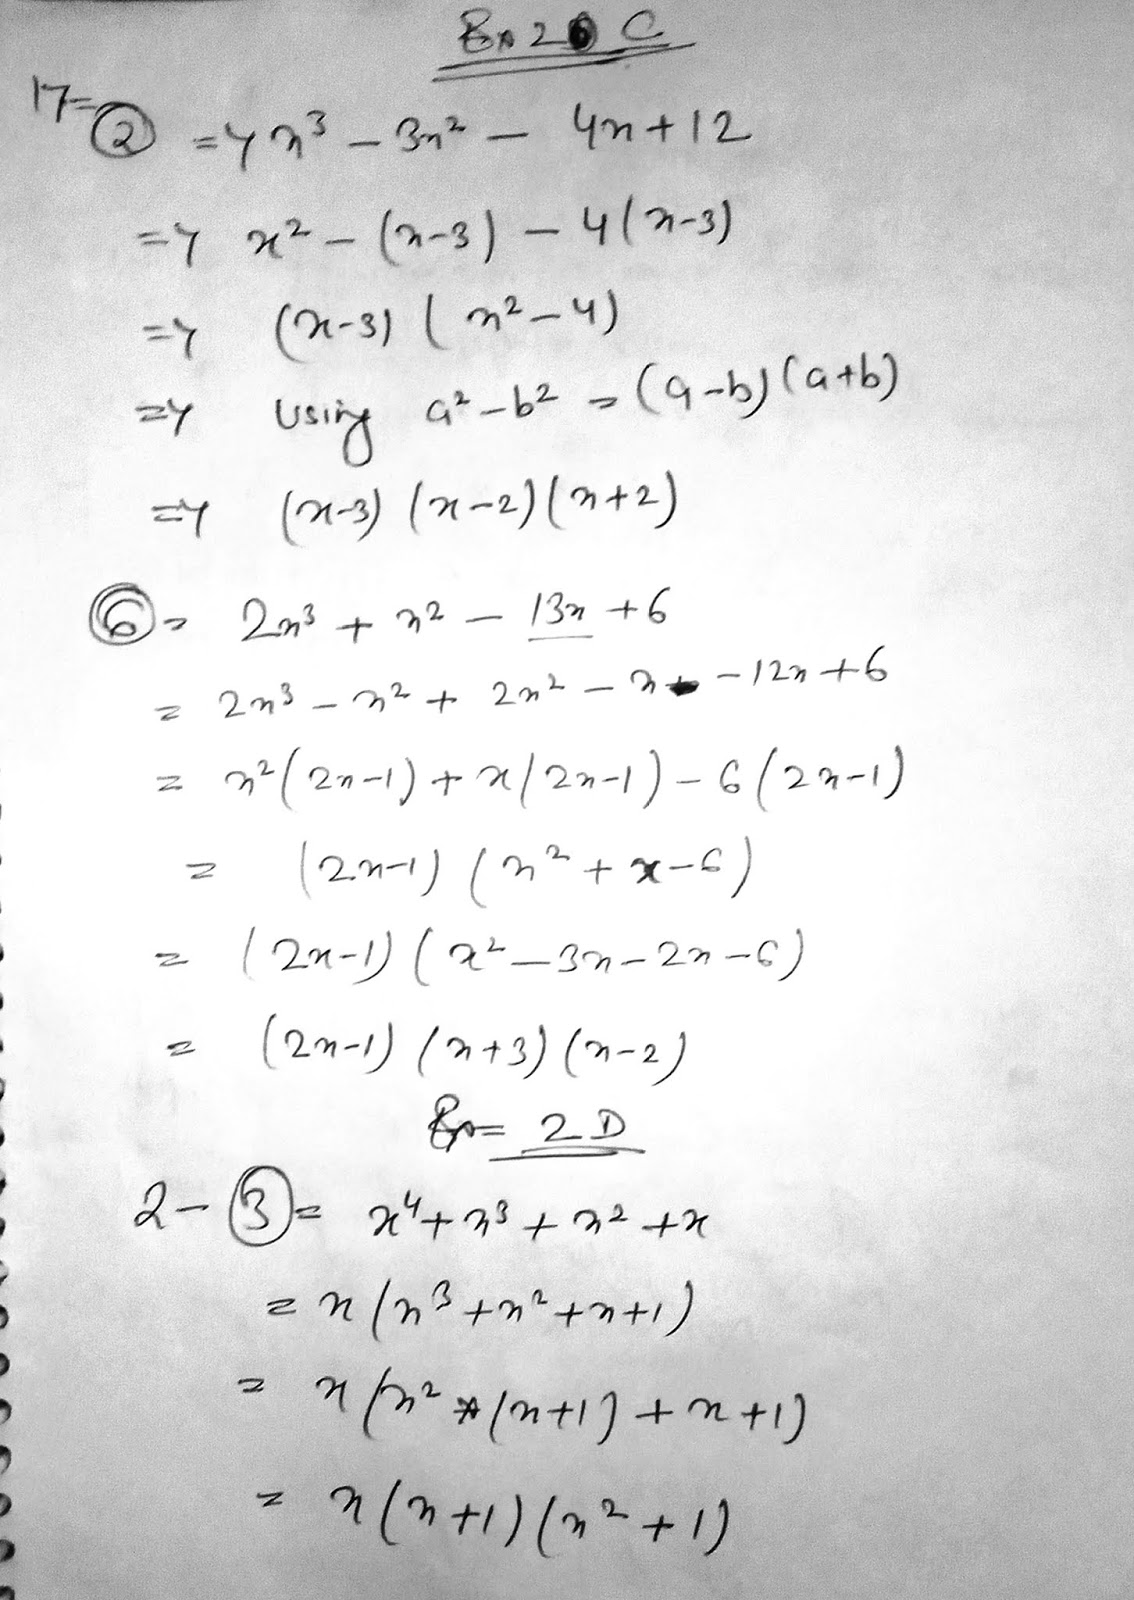 Ex 2 C
17= ② ⇒ x³ - 3x² - 4x + 12
⇒ x² - (x-3) - 4(x-3)
⇒ (x-3) (x² - 4)
⇒ Using a² - b² = (a-b)(a+b)
⇒ (x-3) (x-2)(x+2)
⑥ = 2x³ + x² - 13x + 6
= 2x³ - x² + 2x² - x - 12x + 6
= x²(2x-1) + x(2x-1) - 6(2x-1)
= (2x-1) (x² + x - 6)
= (2x-1) (x² - 3x - 2x - 6)
= (2x-1) (x+3) (x-2)
Ex = 2D
2 - ③ = x⁴ + x³ + x² + x
= x(x³ + x² + x + 1)
= x(x² (x+1) + x + 1)
= x(x+1)(x² + 1)